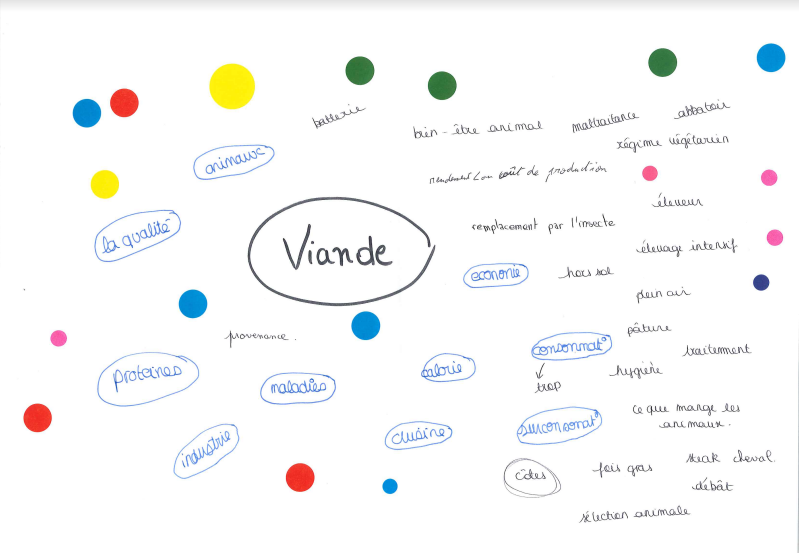 batterie
bien-être animal
maltraitance
abbatoir
régime végétarien
animaux
rendement / ou coût de production
éleveur
la qualité
remplacement par l'insecte
Viande
élevage intensif
economie
hors sol
plein air
pâture
provenance.
consommat°
traitement
proteïnes
calorie
hygiène
maladies
trop
ce que mange les
animaux.
surconsomat°
cuisine
industrie
steak cheval.
fois gras
côtes
débât
sélection animale